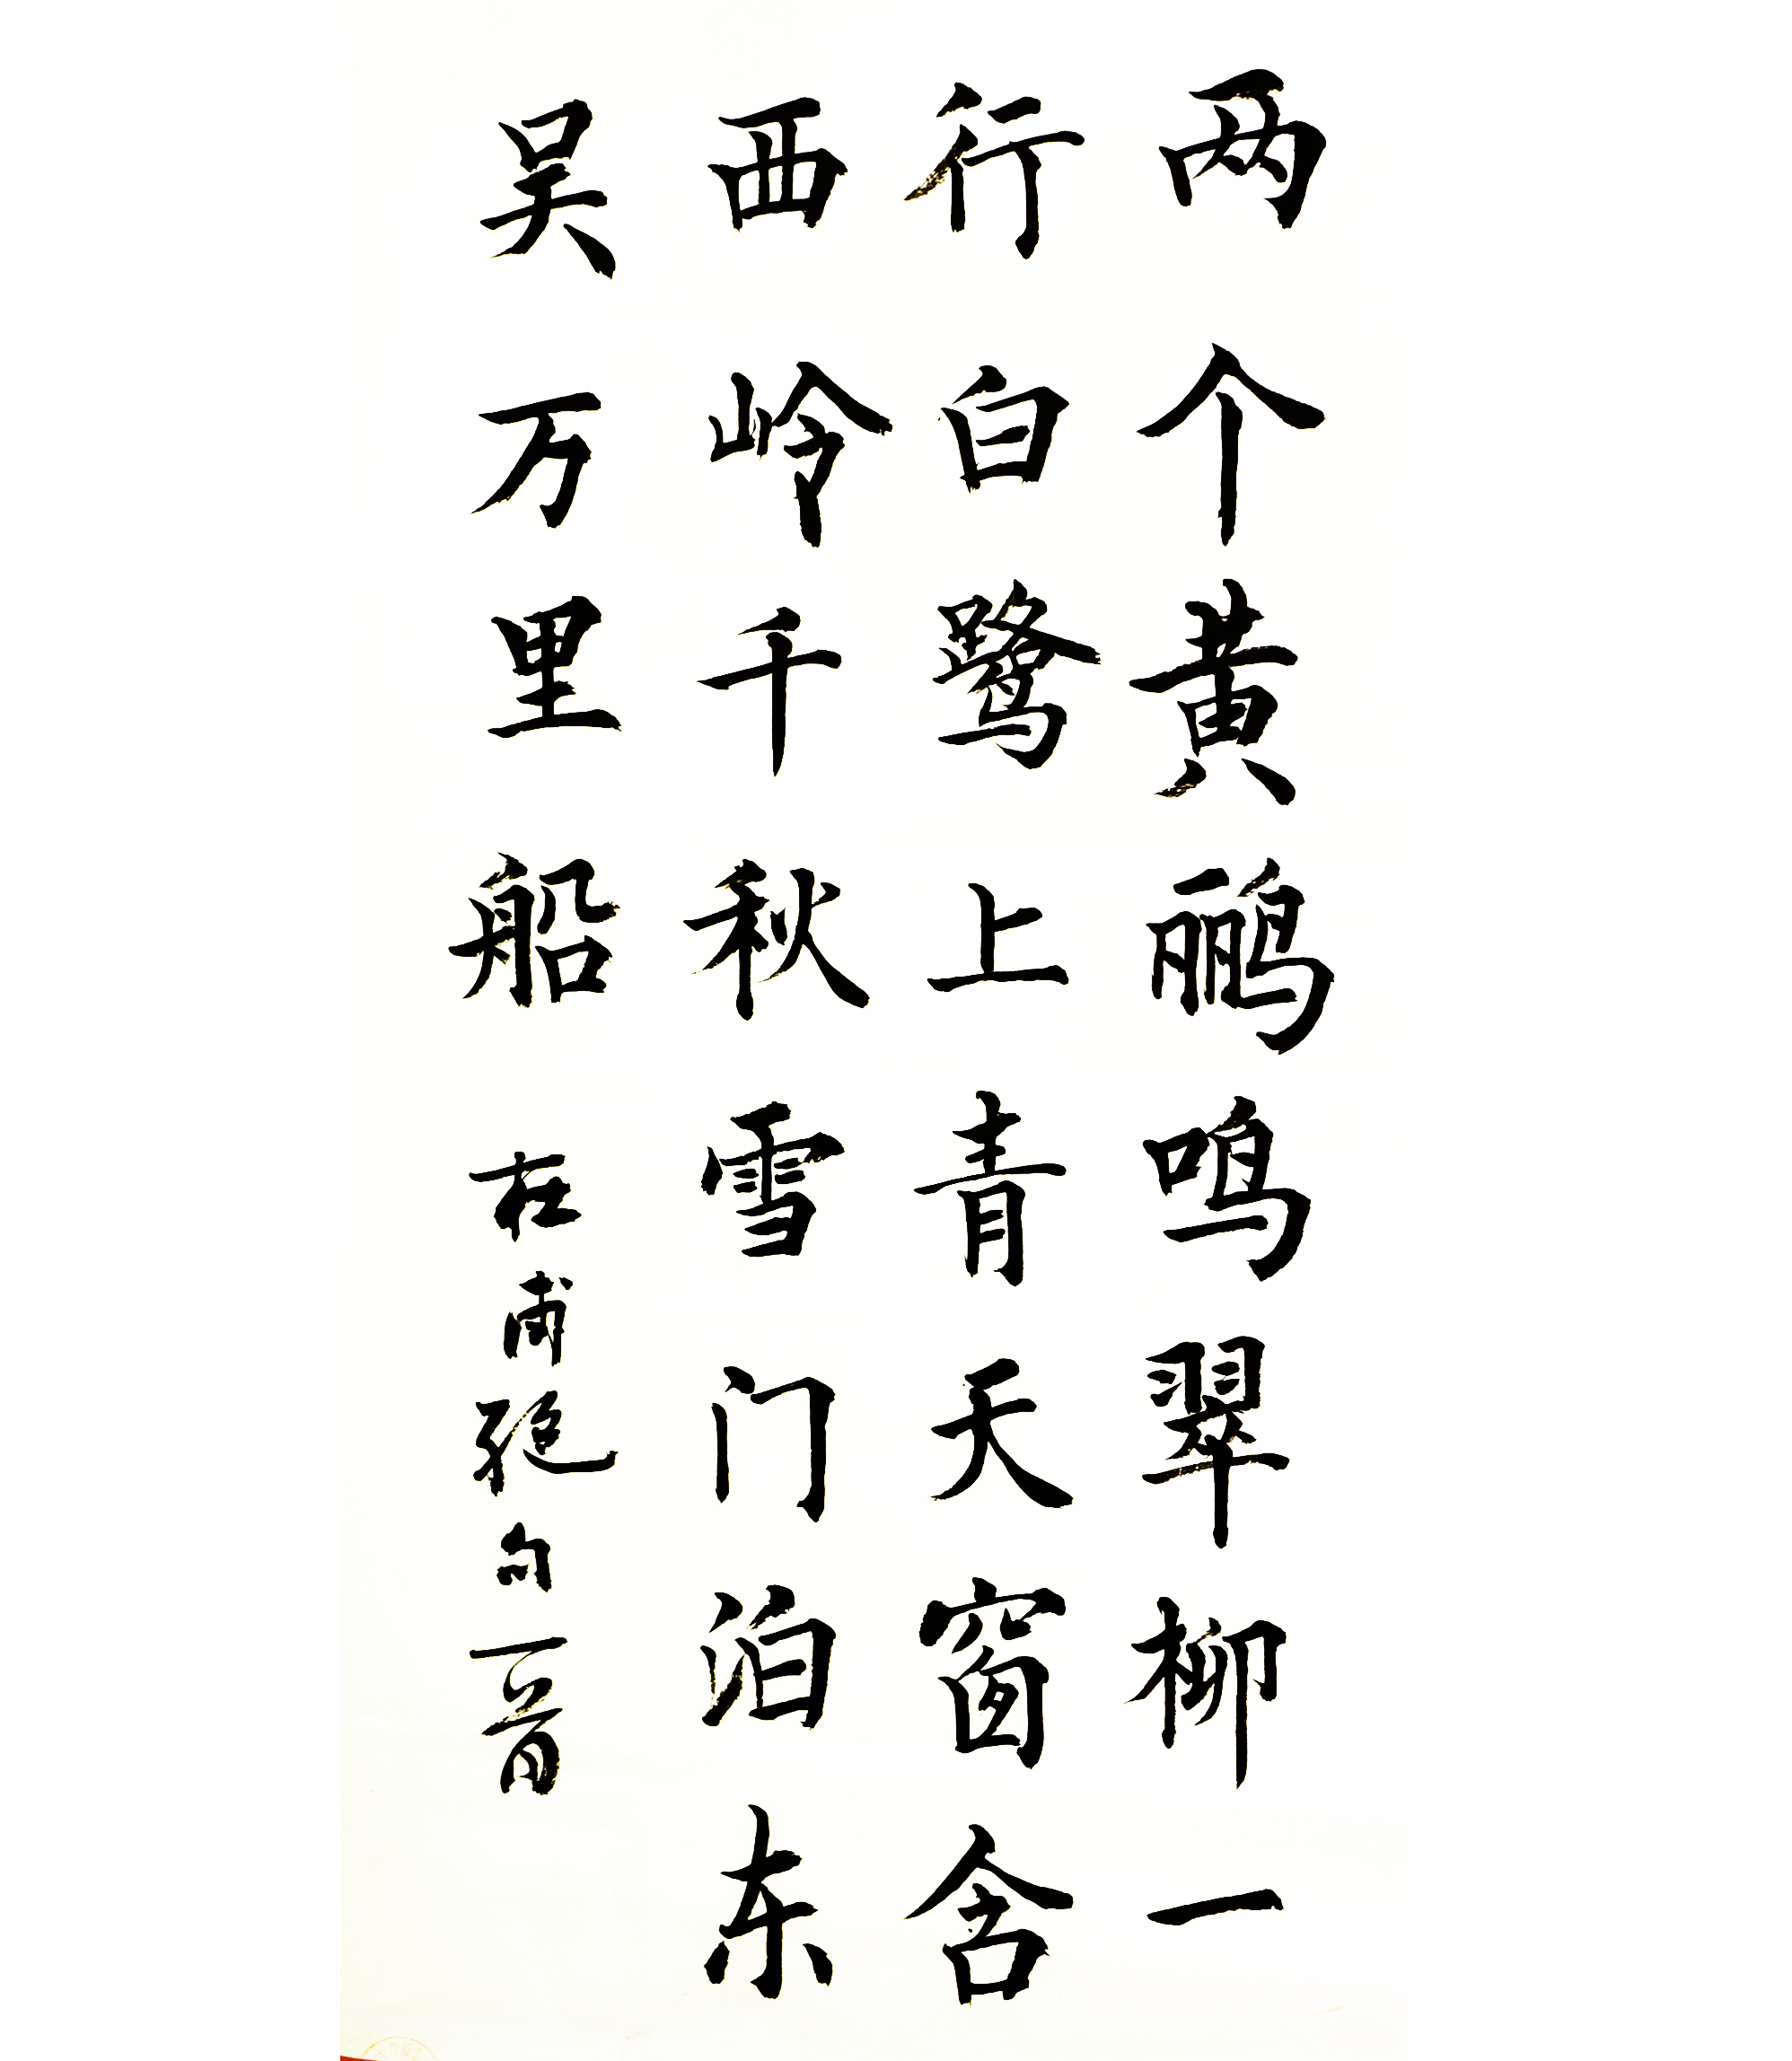 两个黄鹂鸣翠柳一
行白鹭上青天窗含
西岭千秋雪门泊东
吴万里船 杜甫绝句一首